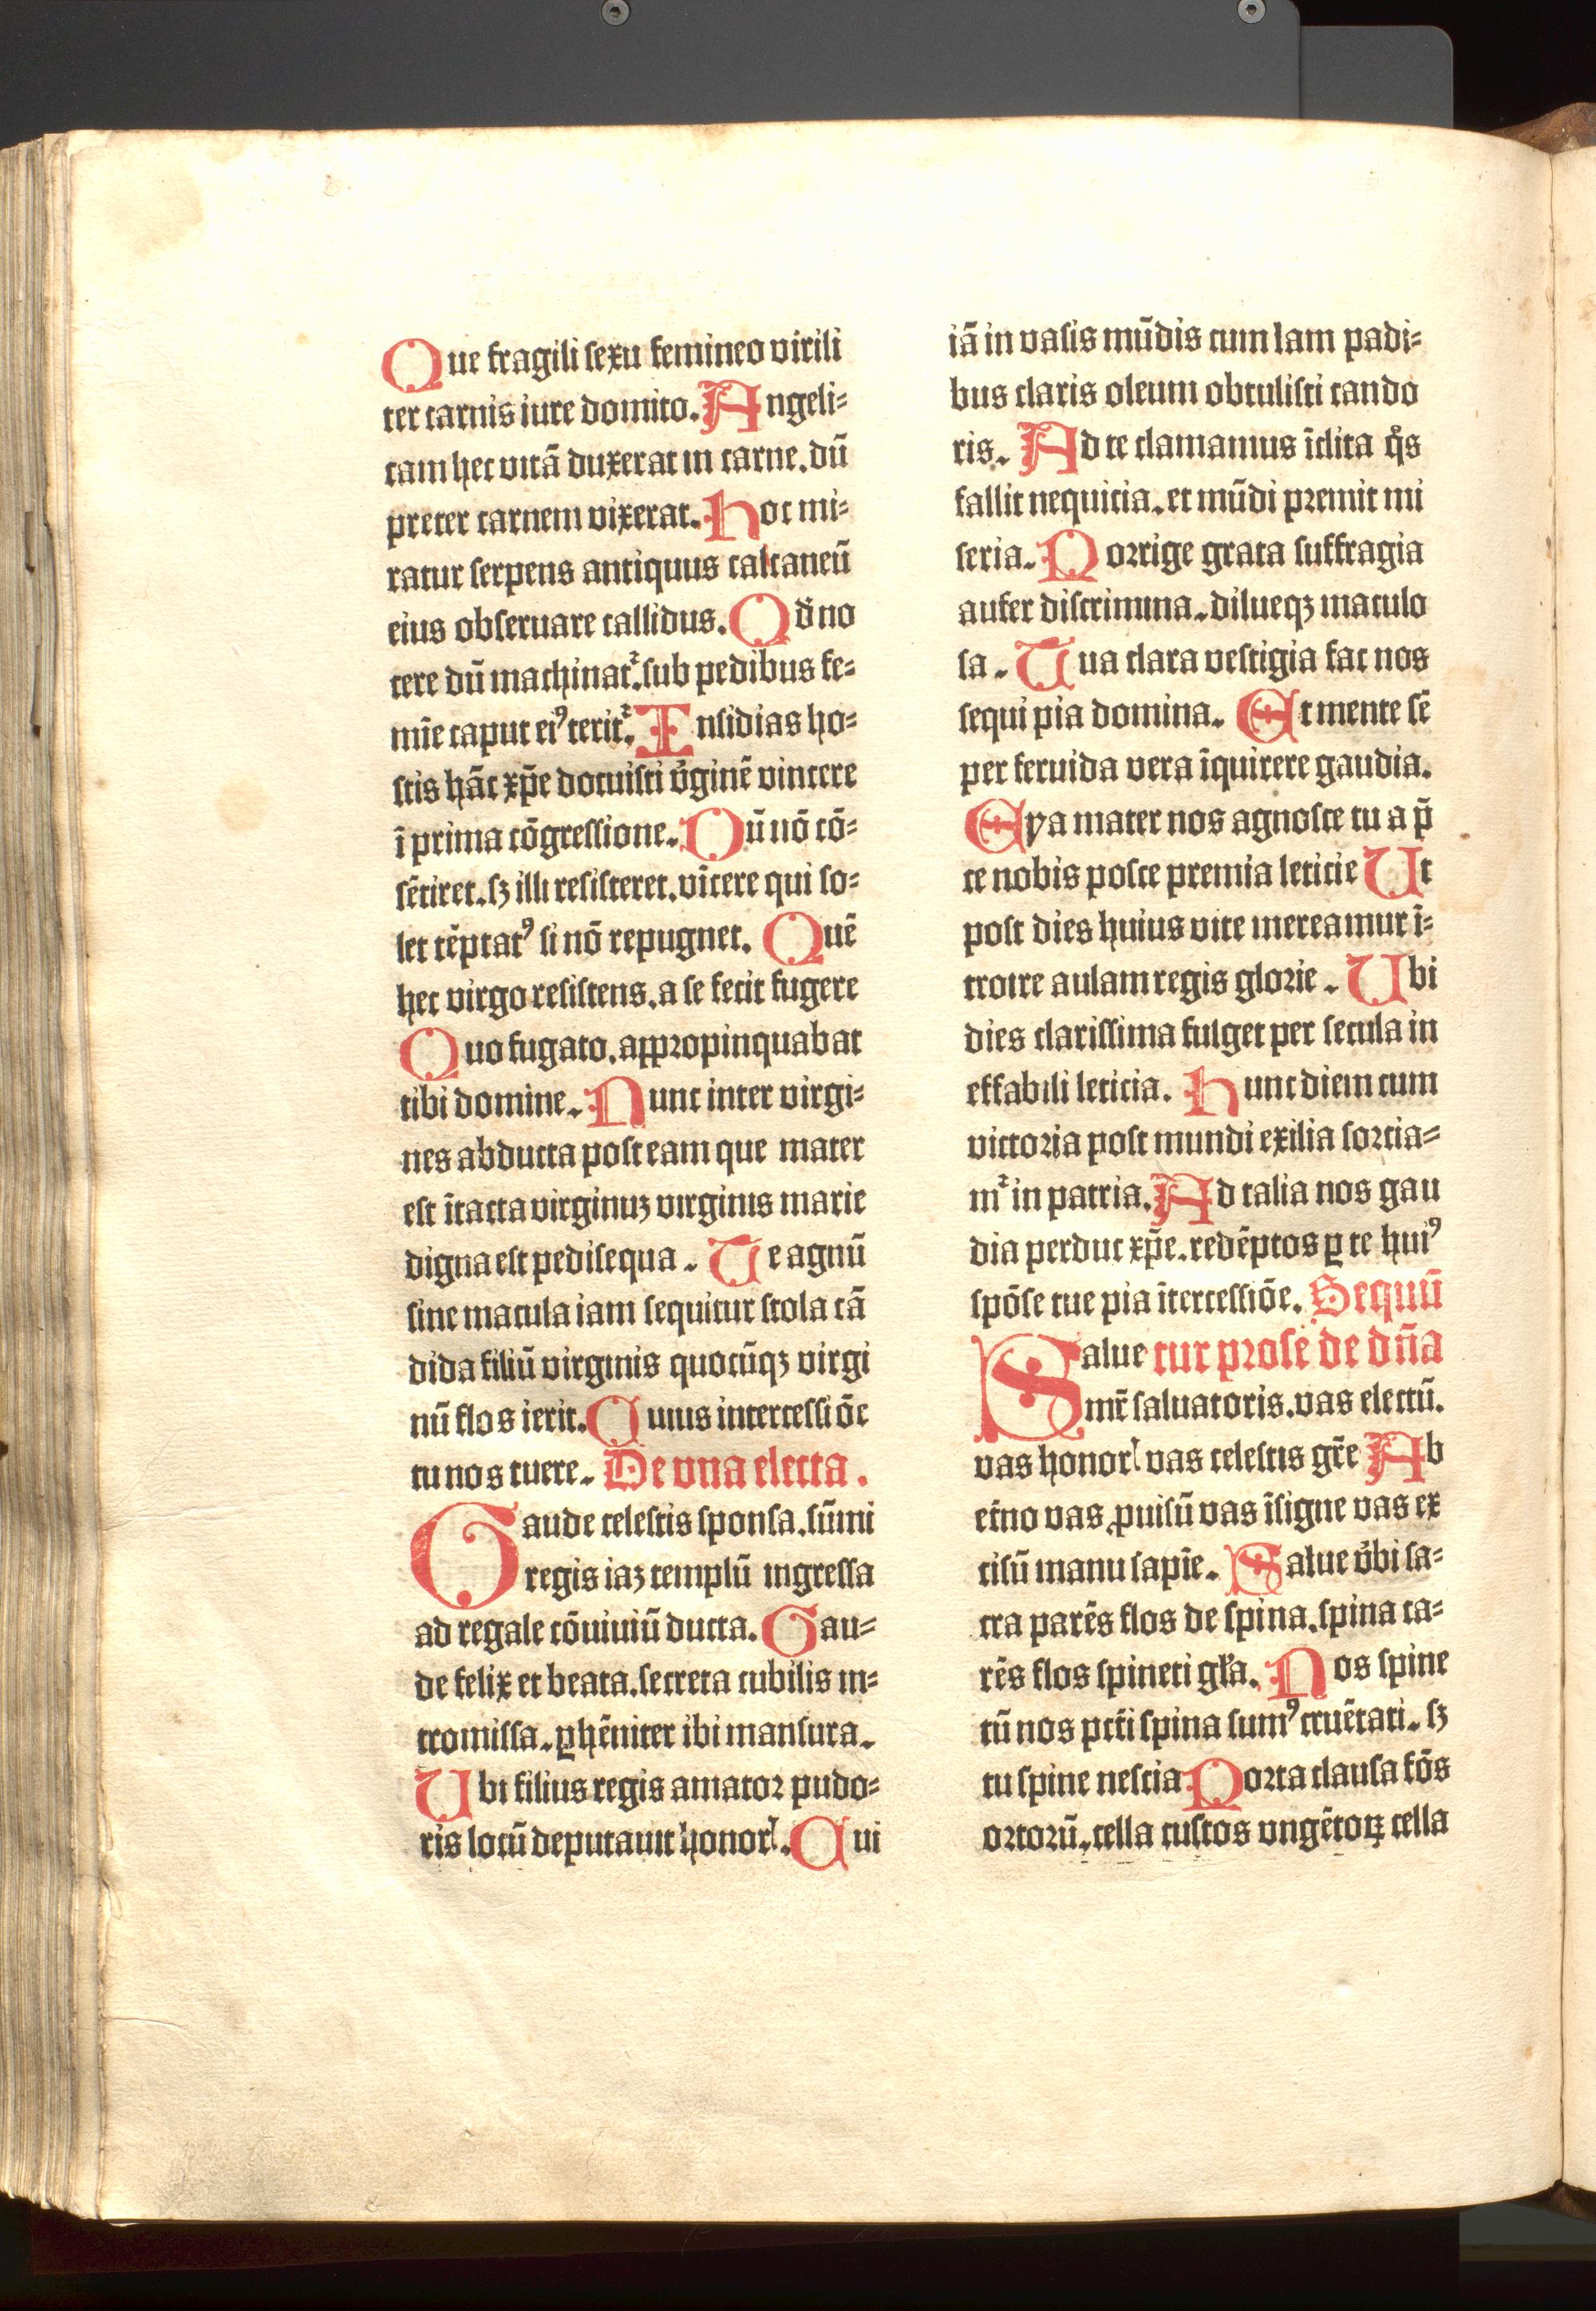 Que fragili sexu femineo virili
ter carnis iure domito. Angeli-
cam hec vitā duxerat in carne. dū
preter carnem vixerat. Hoc mi-
ratur serpens antiquus calcaneū
eius obseruare callidus. Qđ no
cere dū machinat᷑. sub pedibus fe-
mīe caput eiꝰ terit᷑. Insidias ho-
stis hāc xp̄e docuisti v̓ginē vincere
ī prima cōgressione. Dū nō cō-
sētiret. sꝫ illi resisteret. vīcere qui so-
let tēptatꝰ si nō repugnet. Quē
hec virgo resistens. a se fecit fugere
Quo fugato. appropinquabat
tibi domine. Nunc inter virgi-
nes abducta post eam que mater
est ītacta virginuꝫ virginis marie
digna est pedisequa. Te agnū
sine macula iam sequitur stola cā
dida filiū virginis quocūqꝫ virgi
nū flos ierit. Cuius intercessiōe
tu nos tuere. De vna electa.
Gaude celestis sponsa. sūmi
regis iaꝫ templū ingressa
ad regale cōuiuiū ducta. Gau-
de felix et beata. secreta cubilis in-
tromissa. ꝑhēniter ibi mansura.
Ubi filius regis amator pudo-
ris locū deputauit honorꝭ. Cui
iā in vasis mūdis cum lam padi-
bus claris oleum obtulisti cando
ris. Ad te clamamus īclita qͦs
fallit nequicia. et mūdi premit mi
seria. Porrige grata suffragia
aufer discrimina. dilueqꝫ maculo
sa. Tua clara vestigia fac nos
sequi pia domina. Et mente sē
per feruida vera īquirere gaudia.
Eya mater nos agnosce tu a pr̄
te nobis posce premia leticie Ut
post dies huius vite mereamur ī-
troire aulam regis glorie. Ubi
dies clarissima fulget per secula in
effabili leticia. Hunc diem cum
victoria post mundi exilia sortia-
m᷑ in patria. Ad talia nos gau
dia perduc xp̄e. redēptos ꝑ te huiꝰ
spōse tue pia ītercessiōe. Sequū
Salue tur prose de dn̄a
mr̄ saluatoris. vas electū.
vas honorꝭ vas celestis gr̄e Ab
et̓no vas ꝓuisū vas īsigne vas ex
cisū manu sapīe. Salue v̓bi sa-
cra parēs flos de spina. spina ca-
rēs flos spineti gl̓a. Nos spine
tū nos pctī spina sumꝰ cruētati. sꝫ
tu spine nescia Porta clausa fōs
ortorū. cella custos vngētoꝝ cella